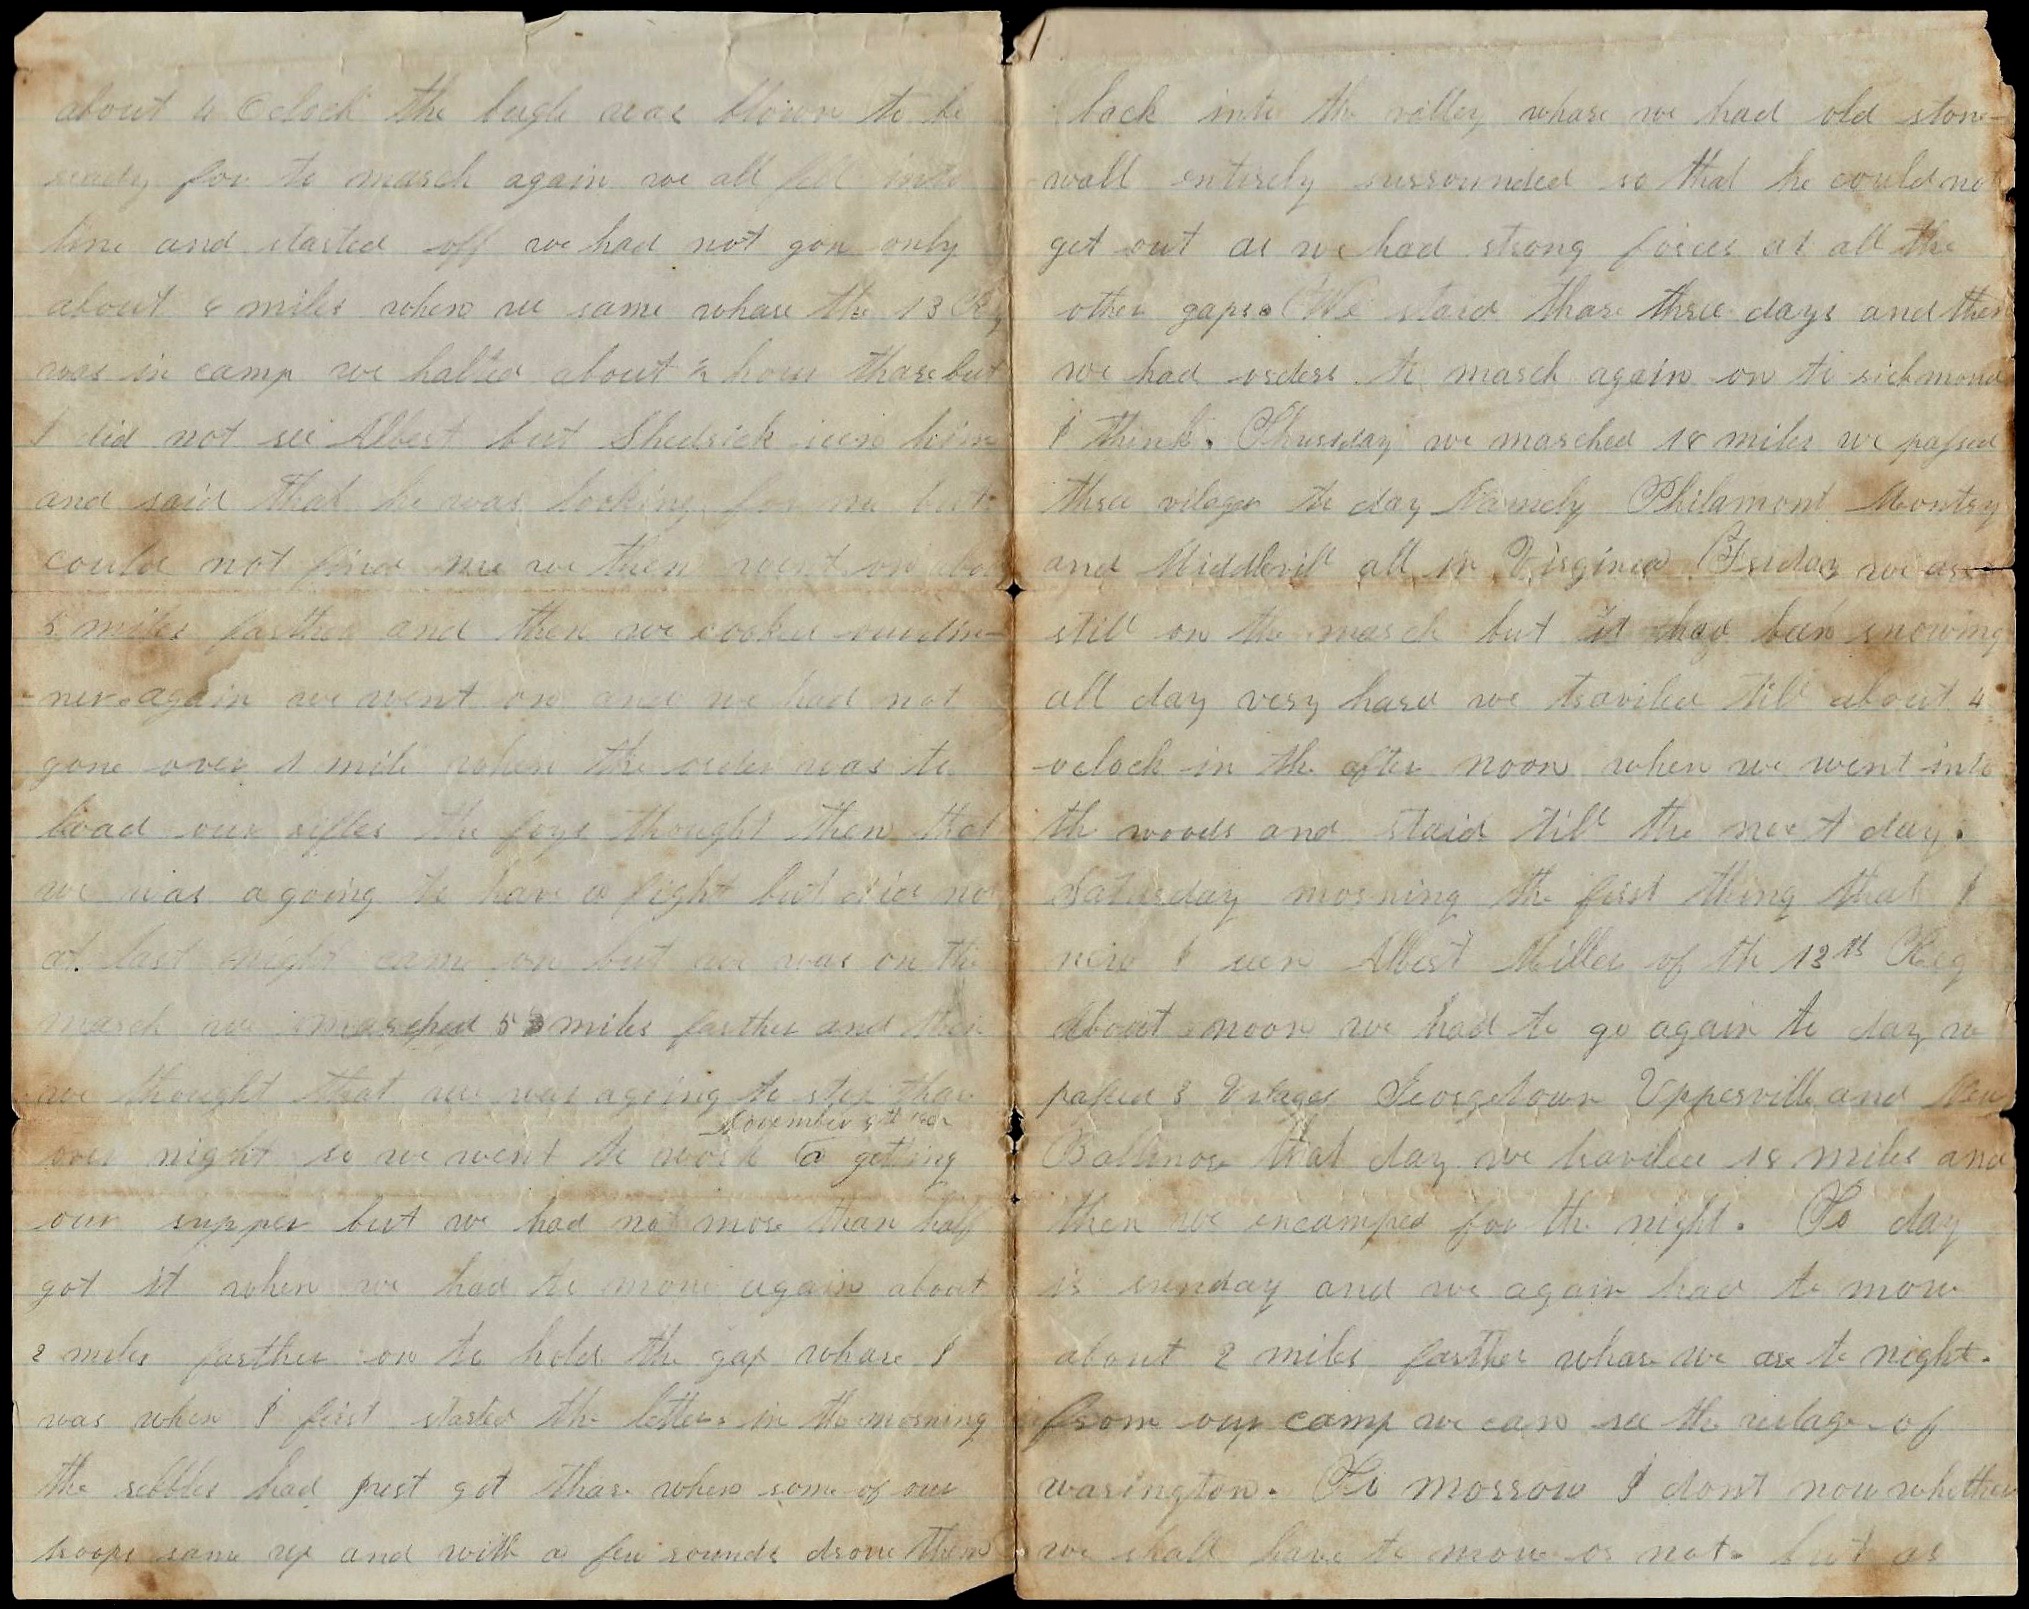 about 4 Oclock the bugle was blown to be
ready for to march again we all fell into
line and started off we had not gon only
about 8 miles when we came whare the 13 Reg
was in camp we halted about ½ hour thare but
I did not see Albert but Shedrick seen him
and said that he was looking for me but
could not find me we then went on abou
5 miles farther and then we cooked our din-
-ner. again we went on and we had not
gone over 1 mile when the order was to
load our rifles the foys thought then that
we was agoing to have a fight but did not
at last night came on but we was on the
march we marched 5 miles farther and then
we thought that we was agoing to stop thare
November 9th 1862
over night so we went to work a getting
our supper but we had not more than half
got it when we had to move again about
2 miles farther on to hold the gap whare I
was when I first started the letter. in the morning
the rebbles had just got thare when some of our
troops came up and with a few rounds drove them
back into the valley whare we had old stone-
wall entirely surrounded so that he could not
get out as we had strong forces at all the
other gaps. We staid thare three days and then
we had orders to march again on to richmond
I think. Thursday we marched 18 miles we passed
three vilages to day Namely Philamont Montry
and Middlevill all in Virginia Friday we are
still on the march but it had been snowing
all day very hard we traviled till about 4
oclock in the after noon when we went into
the woods and staid till the next day.
Saturday morning the first thing that I
new I seen Albert Miller of the 13th Reg
about noon we had to go again to day we
passed 3 Vilages Georgetown Uppervill and New
Baltimore that day we traviled 18 miles and
then we encamped for the night. To day
is sunday and we again had to move
about 2 miles farther whare we are to night.
from our camp we can see the vilage of
warington. To morrow I dont now whether
we shall have to move or not. but as